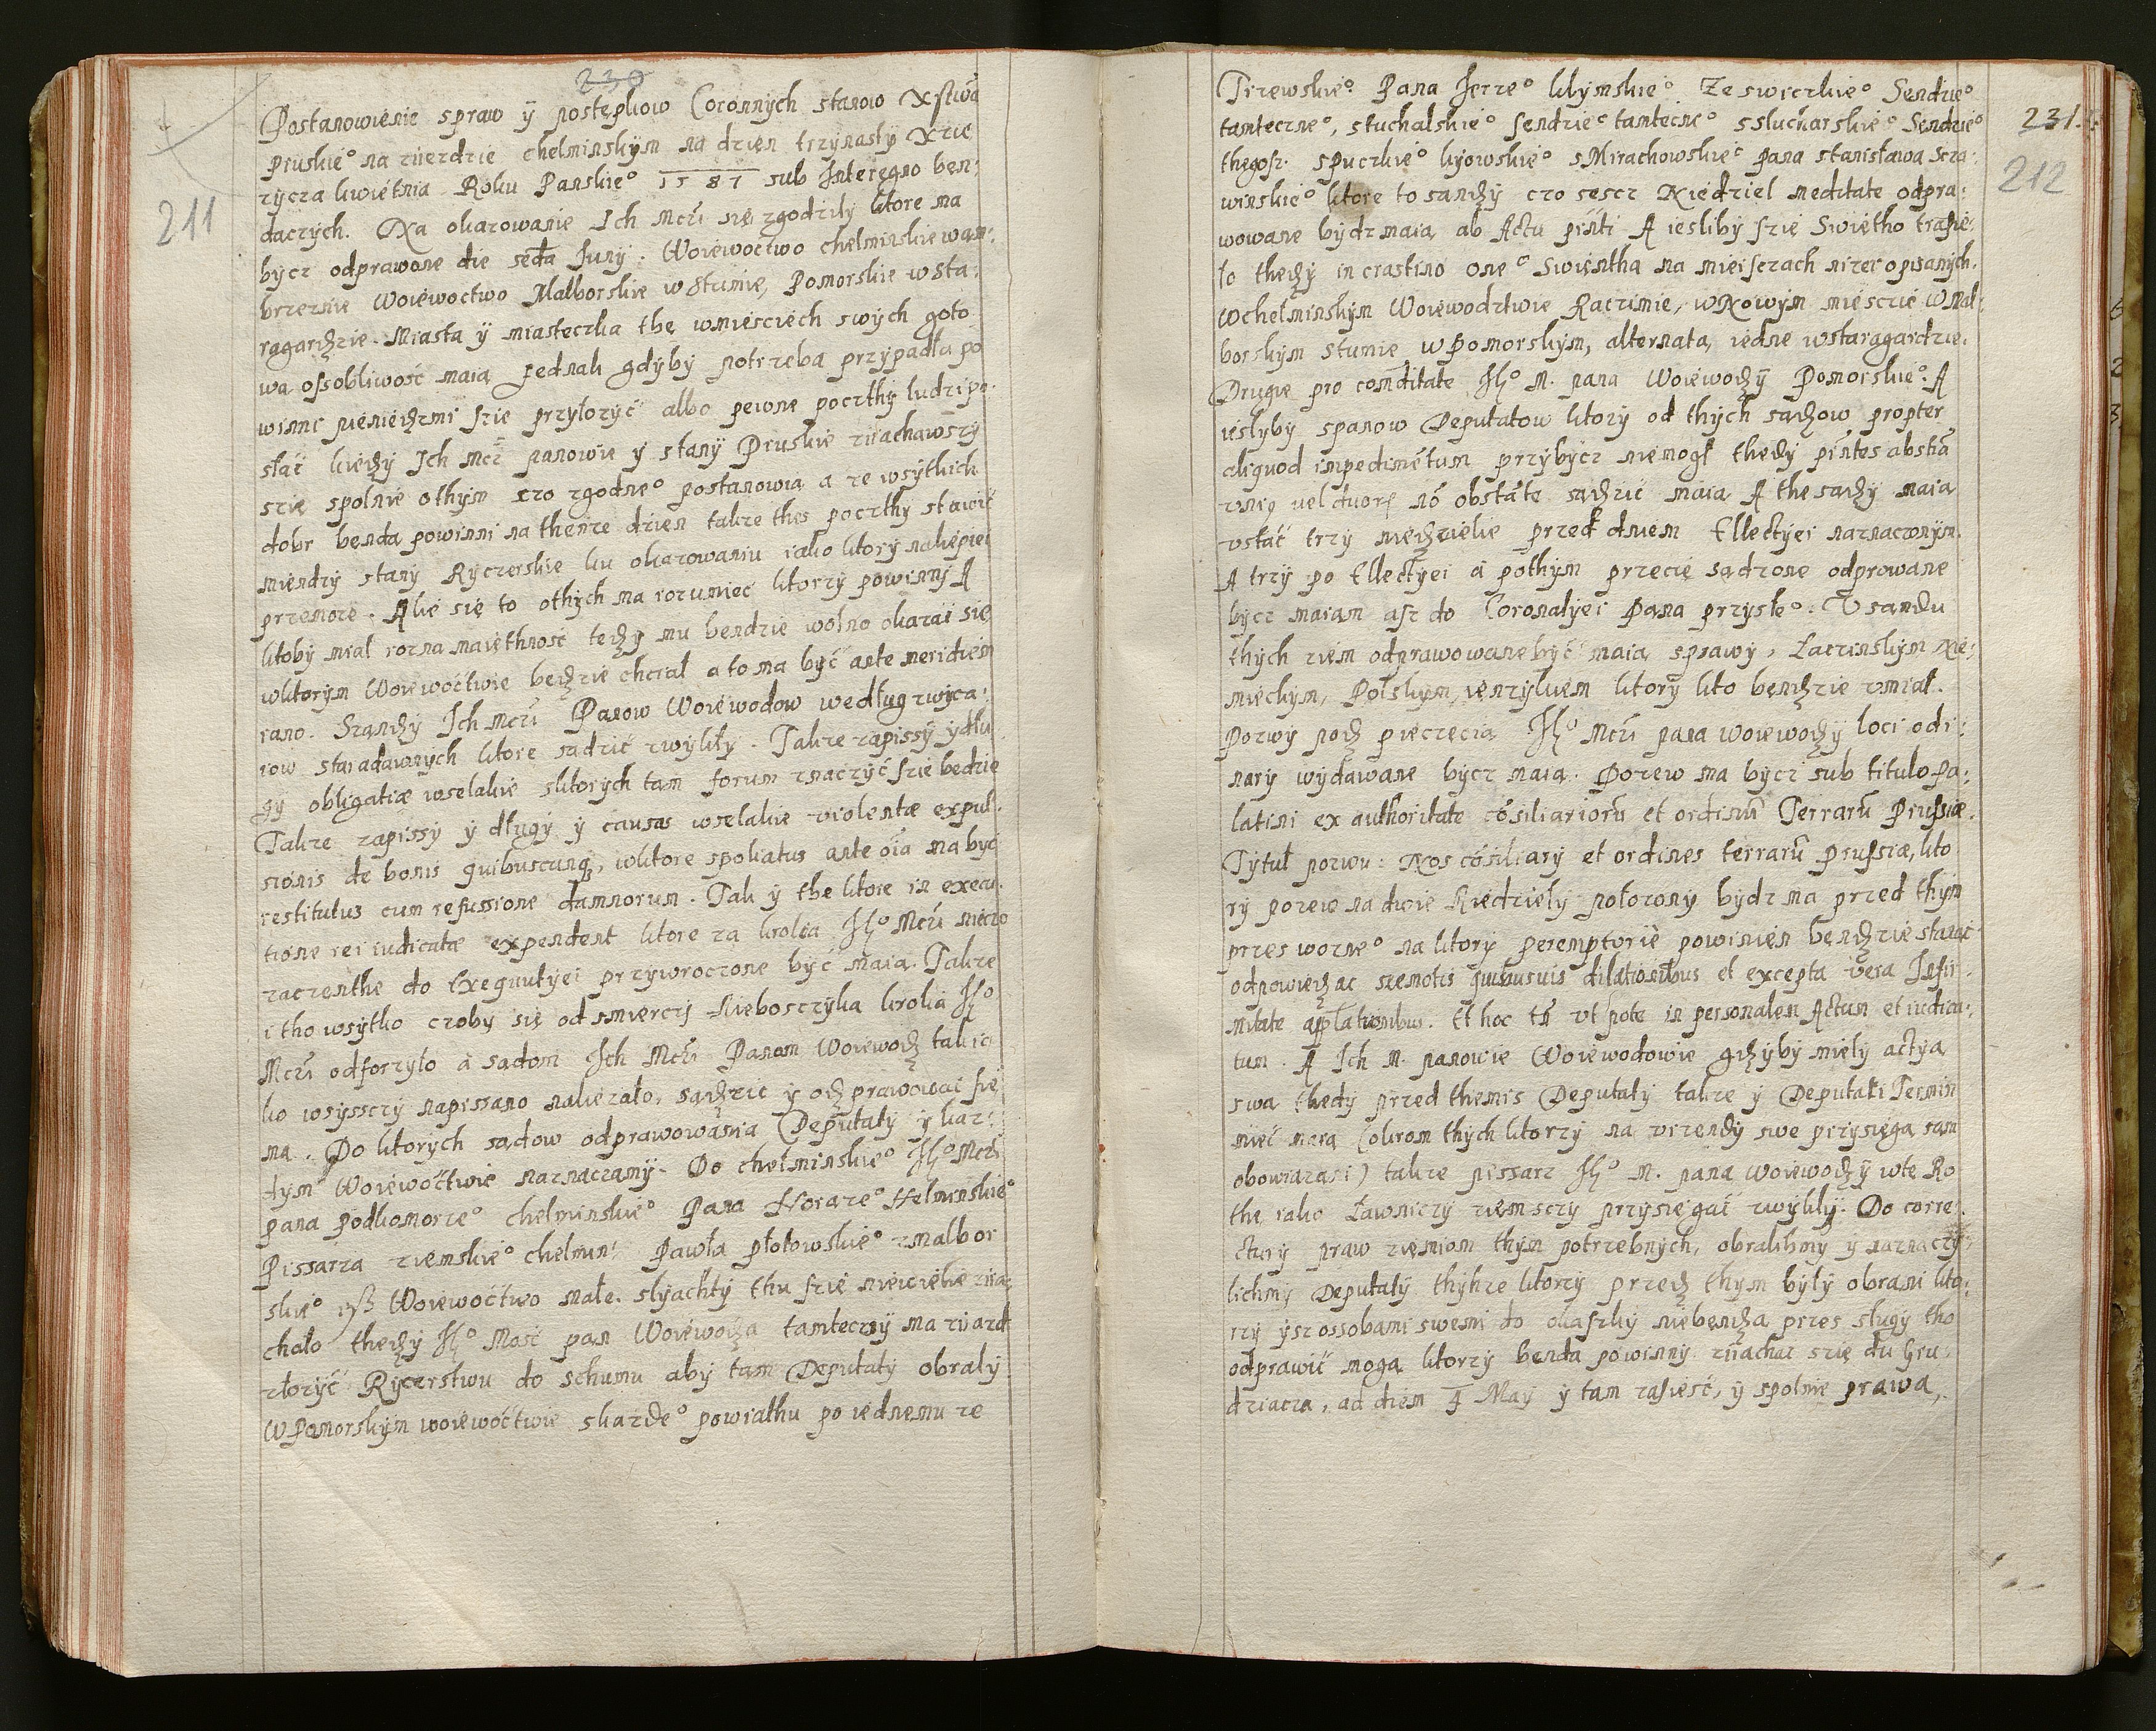 230
211
Postanowienie spraw ÿ postępkow Coronnych stanow Xstwa
Pruskie° na ziezdzie chelminskÿm na dzien trzÿnastÿ Xzię
zÿcza kwiétnia Roku Panskie° 1587 sub Interegno ben:
daczÿch. Na okazowanie Ich Mczi się zgodzilÿ ktore ma
bÿcz odprawone die sexta Junÿ. Woiéwoctwo chelminskie wam:
brzeznie Woiéwoctwo Malborskie w Sztumie, Pomorskie w sta:
ragardzie. Miasta ÿ miasteczka the wmiesciech swÿch goto
wa ossobliwosć maią jednak gdÿbÿ potrzeba przÿpadła po
winni pieniédzmi szie przÿłozÿć albo pewne pocztÿ ludzi po:
słać kiedÿ Ich Mcz panowie ÿ stanÿ Pruskie ziachawszÿ
szie spolnie othÿm czo zgodne° postanowią a ze wsÿtkich
dobr bęnda powinni na thenze dzien takze thes pocztÿ stawić
miendzÿ stanÿ Rÿczerskie ku okazowaniu iako ktorÿ nalepiei
przemoze. Ale się to othÿch ma rozumieć ktorzÿ powinnÿ A
ktobÿ miał rozna maiéthnosc tedÿ mu bendzie wolno okazać się
wktorÿm Woiéwoctwie bedzie chciał a to ma bÿć ante meridiem
rano. Sandÿ Ich Mczi Panow Woiéwodow według zwÿcza:
iow staradawnÿch ktore sądzić zwÿklÿ. Takze zapissÿ ÿ dłu
gÿ obligatiæ wselakie sktorÿch tam forum znaczÿć szie bedzie
Takze zapissÿ ÿ długÿ ÿ causas wselakie violentæ expul:
sionis de bonis quibuscunq, wktore spoliatus ante oia ma bÿć
restitutus cum refussione damnorum. Tak ÿ the ktore in execu:
tione rei iudicatæ expendent ktore za krolia Jº Mczi nieczo
zaczenthe do Exequutÿei przÿwroczone bÿć maią. Takze
i tho wsÿtko czobÿ się od smiercÿ Nieboszczÿka krolia Jº
Mczi odforzÿło á sądom Ich Mczi Panom Woiewod takie
ko wsÿssczÿ napissano nalezało, sądzic ÿ odprawowac się
ma. Do ktorÿch sądow odprawowania Deputatÿ ÿ kaz:
dÿm Woiéwoctwie naznaczamÿ. Do chelminskie° Jº Mczi
pana Podkomorze° chelminskie° Pana Chorąze° Helminskie°
Pissarza ziemskie° chelmin: Pawła płotowskie° zmalbor
skie° isz Woiéwoctwo małe. slÿachtÿ thu szie niéwiéle zia:
chało thedÿ Jº Mosć pan Woiéwoda tamtecznÿ ma ziazd
złozÿć Rÿczerstwu do Schumu abÿ tam Deputatÿ obralÿ
W Pomorskÿm woiéwoctwie skazde° powiathu po iédnemu ze
231.
212
Tczewskie° Pana Jerze° klÿmskie° Ze swieczkie° Sendzie°
tamteczne°, stuchalskie° sendzie° tamtecne° ssłucharskie° Sendzie°
thegosz. spuczkie° kÿowskie° sMirachowskie° pana stanisława Scza:
winskie° ktore to sandÿ czo sescz Niédziel meditate odpra:
wowane bÿdz maią, ab Actu pńti A iesliby szie Swiétho trafie:
to thedÿ in crastino one° Swiéntha na mieisczach nizei opisanÿch.
Wchelminskÿm Woiéwodztwie Raczinie, w Nowÿm miéscie w Mal:
borskÿm stumie w Pomorskÿm, alternata, iédne wstaragardzie.
Drugie pro comditate Jº M. pana Woiéwodÿ Pomorskie°. A
ieslÿbÿ spanow Deputatow ktorÿ od thÿch sądow propter
aliquod impedimẽtum przÿbÿcz niemogł thedÿ pńtes absẽtia
vnig vel duorg nõ obstãte sądzić maią A the sądÿ maia
vstać trzÿ niedzielie przed dniem Ellectÿei naznaczonÿm.
A trzÿ po Ellectÿei á pothÿm przecię sądzone odprowane
bÿcz maiam asz do Coronatÿei Pana przÿsłe°. V sandu
thÿch ziém odprawowane bÿć maią sprawÿ, Łaczinskÿm Nie:
mieckÿm, Polskÿm, iénzÿkiem ktorÿ kto bęndzie vmiał.
Pozwÿ pod pieczęcią Jº Mczi pana woiéwodÿ loci ordi:
narÿ wÿdawane bÿcz maią. Pozew ma bÿcz sub titulo Pa:
latini ex authoritate cõsiliariorũ et ordinũ Terrarũ Prussiæ.
Tÿtuł pozwu: Nos cõsiliarÿ et ordines terrarũ prussiæ, kto
rÿ pozew na dwie Niedzielÿ położonÿ bÿdz ma przed thÿm
przes wozne° na ktorÿ peremptorie powinien bęndzie stanąć
odpowiedac remotis quibusuis dilationibus et excepta vera Infir:
mitate applationibus. Et hoc tń vt pote in personalem Actum et iudica:
tum. A Ich M. panowie Woiéwodowie gdÿbÿ mielÿ actÿa
swa thedÿ przed themis Deputatÿ takze ÿ Deputati Termin
mieć maią (okrom thÿch ktorzÿ na vrzendÿ swe przÿsięgą sam
obowiazani) takze pissarz Jº M. pana woiéwodÿ wte Ro
the iako Ławniczÿ ziemsczÿ przÿsięgać zwÿklÿ. Do corre:
cturÿ praw ziemiom thÿm potrzebnÿch, obralihmÿ ÿ naznaczÿ:
lichmÿ Deputatÿ thÿhze ktorzÿ przed thÿm bÿlÿ obrani kto:
rzÿ ÿsz ossobami swemi do okaszkÿ niebęnda przes sługÿ tho
odprawić moga ktorzÿ benda powinnÿ ziachac szię du Gru:
dziącza, ad diem 4 Maÿ ÿ tam zasiesć, ÿ spolnie prawa,